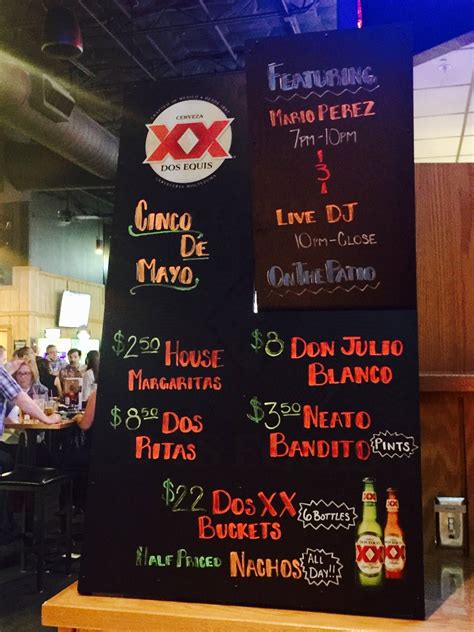 CERVEZA
XX
DOS EQUIS
CINCO
DE
MAYO
FEATURING
MARIO PEREZ
7PM-10PM
3
LIVE DJ
10PM-CLOSE
ON THE PATIO
$2.50 HOUSE
MARGARITAS
$8.50 DOS
RITAS
$8 DON JULIO
BLANCO
$3.50 NEATO
BANDITO PINTS
$22 DOS XX
BUCKETS
6 BOTTLES
HALF PRICED NACHOS
ALL
DAY!!
XX
XX